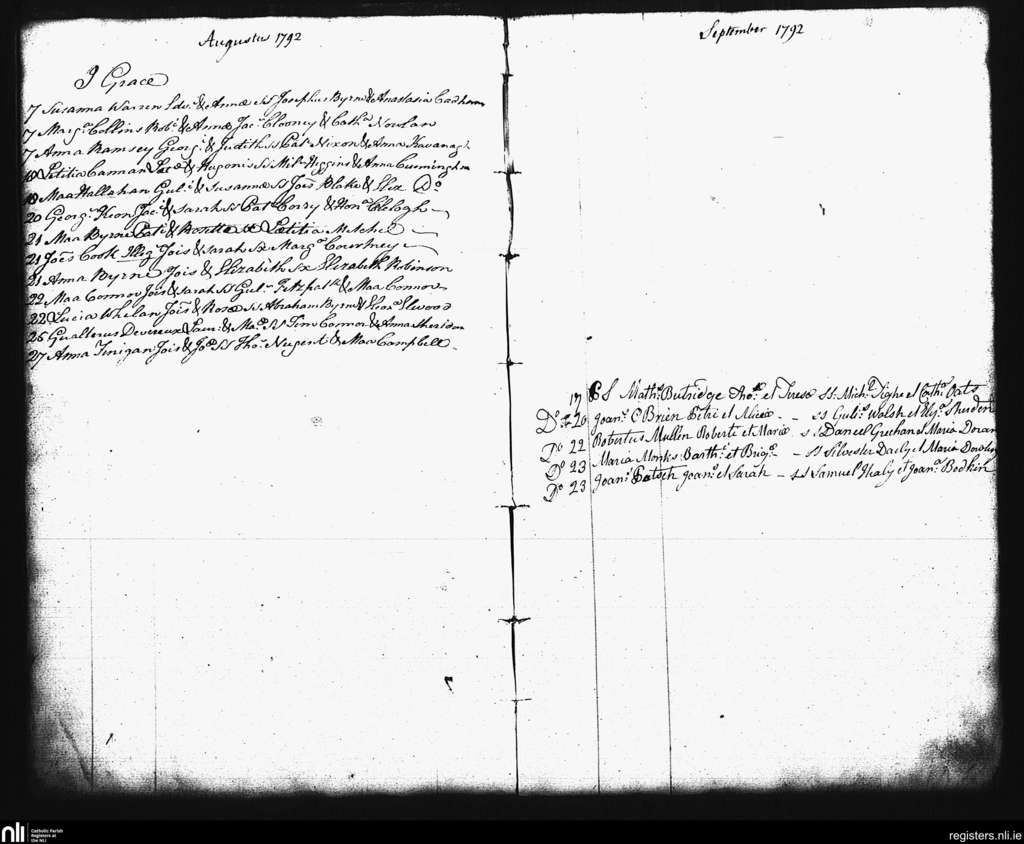 Augustus 1792
J Grace
7 Susanna Warren Edv. & Annæ SS Josephus Byrne & Anastasia
7 Marg. Collins Rob. & Annæ Jac. Clooney & Cath. Nowlan
7 Anna Ramsey Georg. & Judith SS Pat Nixon & Anna Kavanagh
18 Letitia Cannan & Hugonis SS Mil. Higgins & Anna Cunningham
18 Maa Hallahan Gul. & Susannæ SS Joēs Blake & Eliz Do
20 Georg. Keon Jac. & Sarah SS Pat Corry & Hon.
21 Maa Byrne Pati & Rosetta Lætitia Mitchel
21 Joēs Cook Illeg. Jois & Sarah Sx Marg. Courtney
21 Anna Byrne Jois & Elizabith Sx Elizabeth Robinson
22 Maa Connor Jois & Sarah SS Gul. Fitzpat & Maa Connor
22 Lucia Whelan Jois & Rosæ SS Abraham Byrne & Elwood
26 Gualterus Devereux & Ma SS Tim Connor & Anna Sheridan
27 Anna Finigan Jois & SS Tho. Nugent & Maa Campbell
September 1792
17 Math. Butridge Tho. et Teresæ SS. Mich. Tighe et Cath. Oats
Do 20 Joan. O Brien Petri et Aliciæ - - SS Gul. Walsh et
Do 22 Robertus Mullen Roberti et Mariæ SS Daniel Grehan et Maria Doran
Do 23 Maria Monks Barth. et Brig. - SS Silvester Daely et Maria Dowling
Do 23 Joan. Joan. et Sarah - SS Samuel et Joan. Bodkin
nli
Catholic Parish
Registers at
the NLI
registers.nli.ie